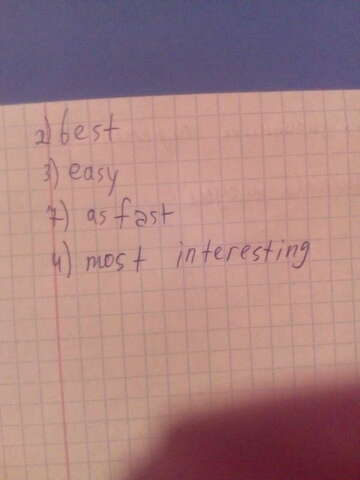 2) best
3) easy
7) as fast
4) most interesting